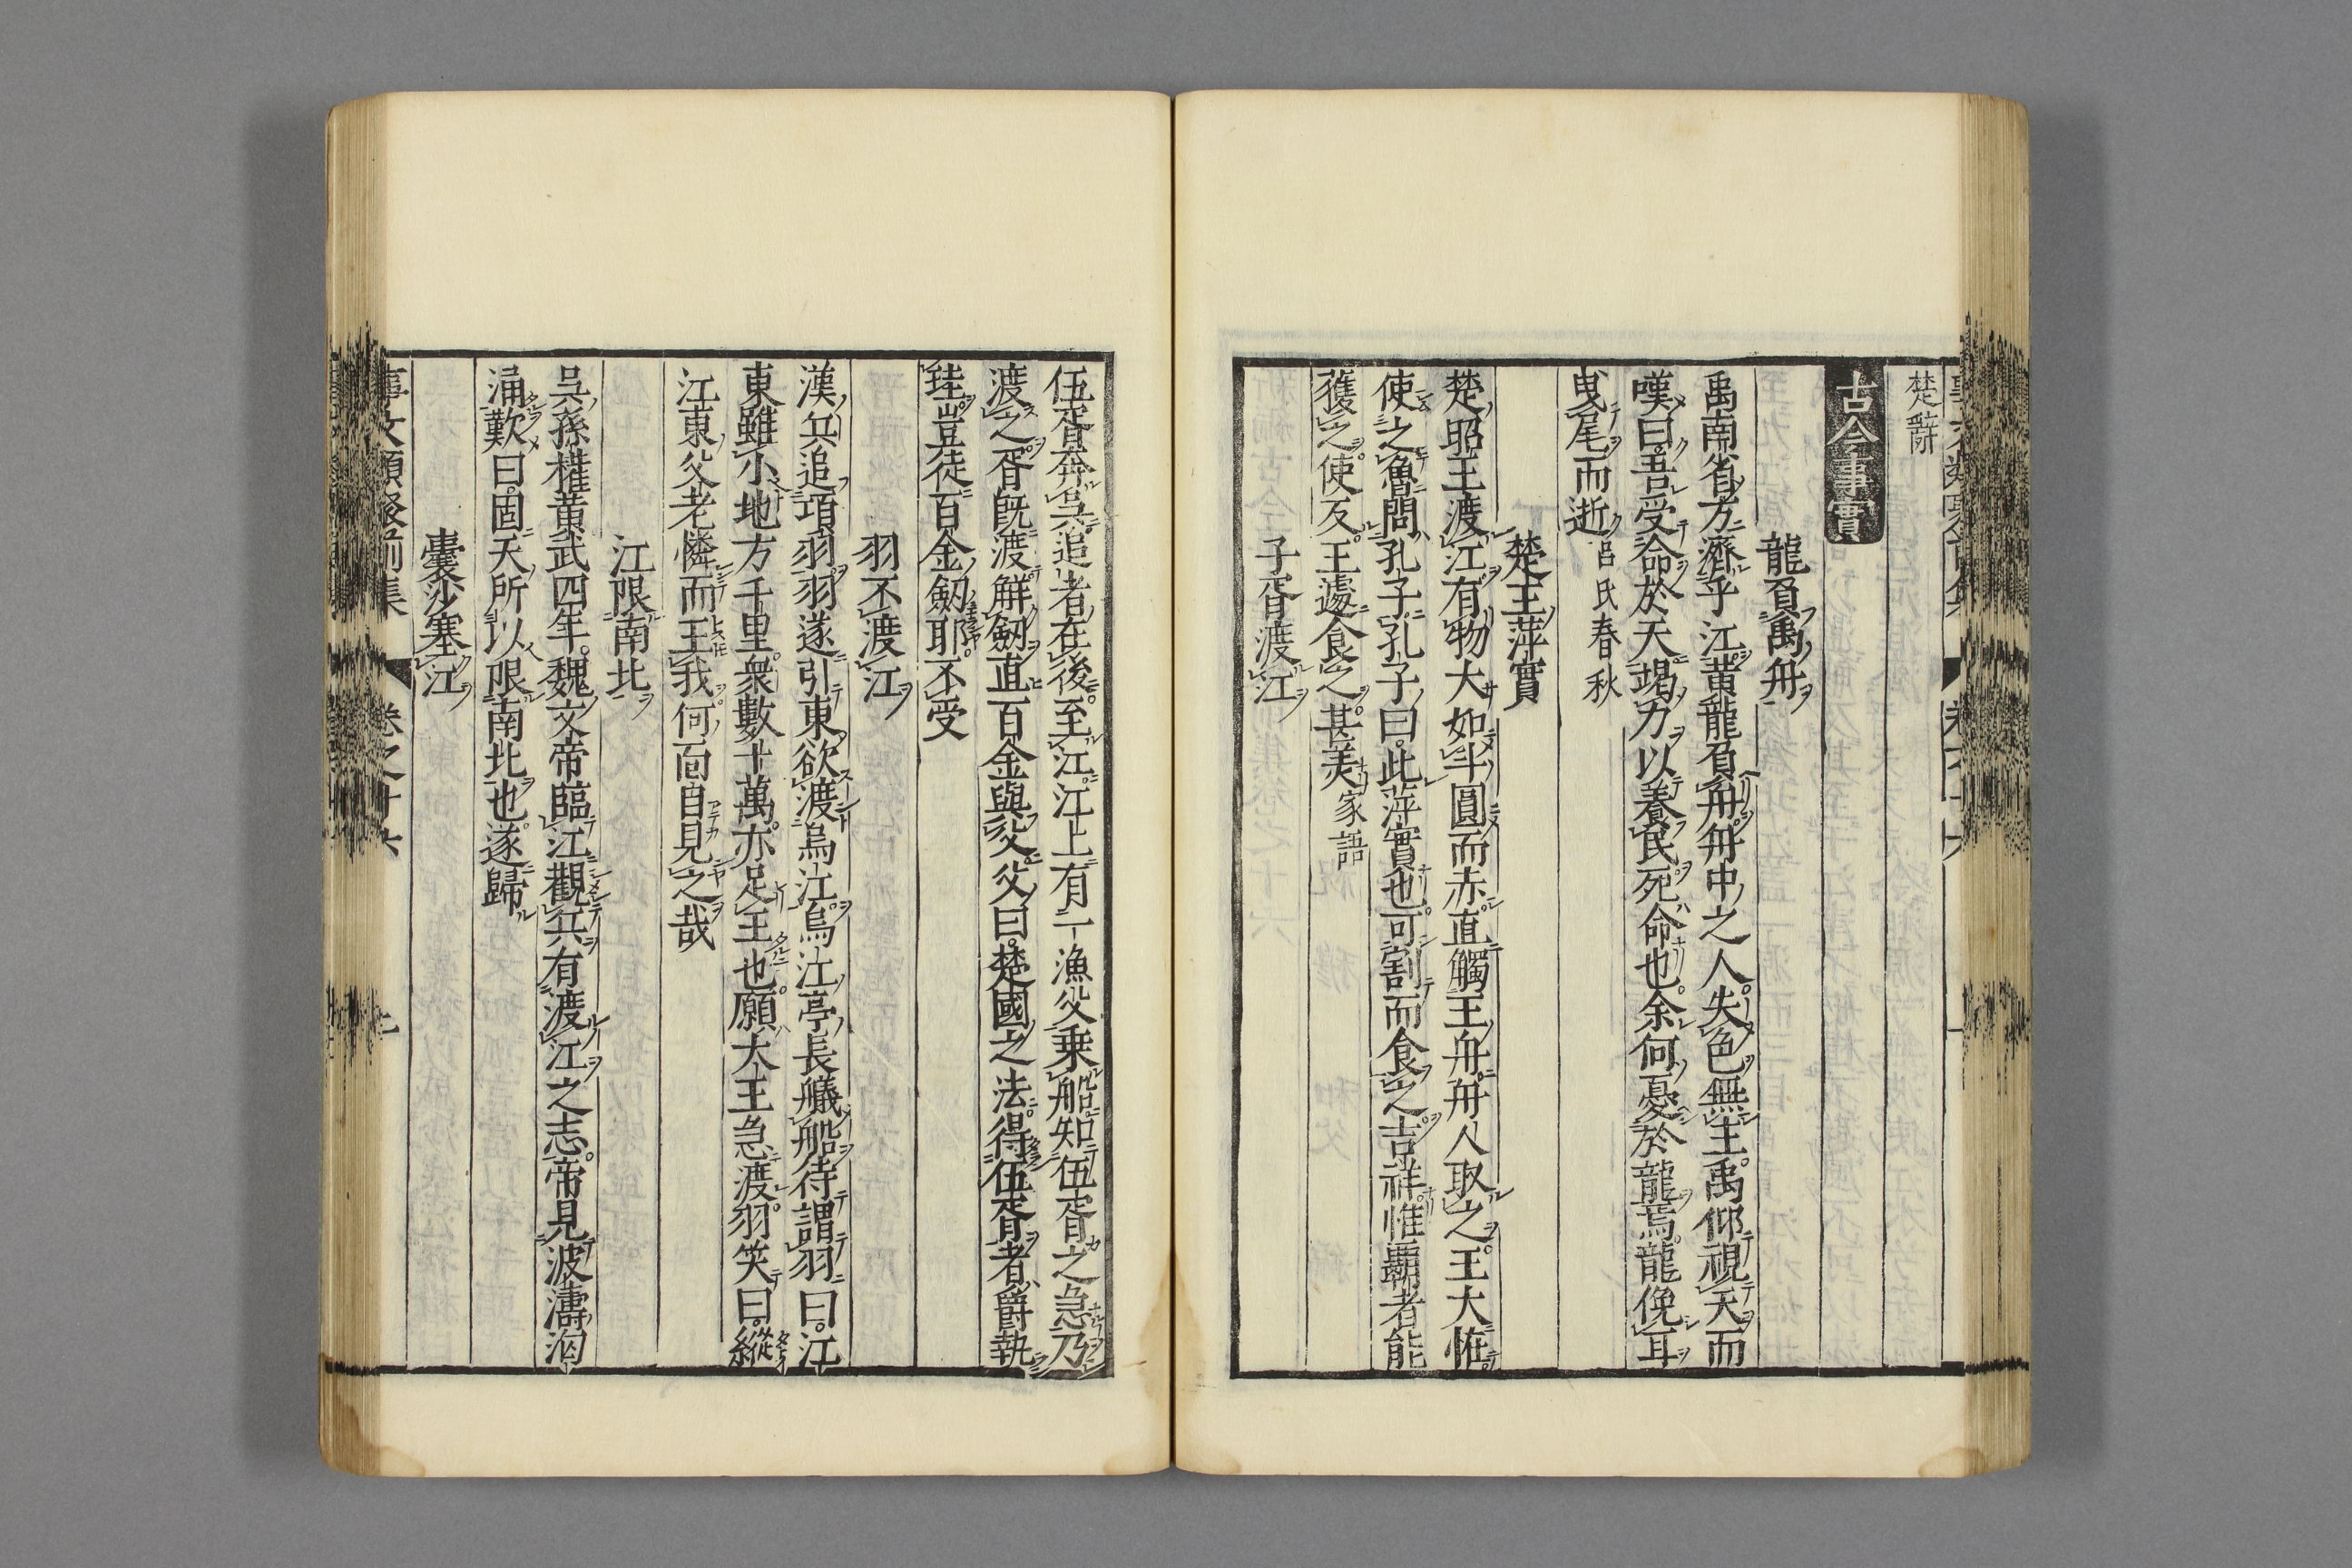 楚辭
古今事實
龍負禹舟
禹南省方濟乎江黃龍負舟舟中之人失色無主禹仰視天而
嘆曰吾受命於天竭力以養民死命也余何憂於龍焉龍俛耳
曳尾而逝呂氏春秋
楚王萍實
楚昭王渡江有物大如斗圓而赤直觸王舟舟人取之王大恠
使之魯問孔子孔子曰此萍實也可割而食之吉祥惟霸者能
獲之使反王遂食之甚美家語
子胥渡江
伍胥奔吳追者在後至江江上有一漁父乗船知伍胥之急乃
渡之胥旣渡解劒直百金與父父曰楚國之法得伍胥者爵執
珪豈徒百金劒耶不受
羽不渡江
漢兵追項羽羽遂引東欲渡烏江烏江亭長艤船待謂羽曰江
東雖小地方千里衆數十萬亦足王也願大王急渡羽笑曰縱
江東父老憐而王我何面目見之哉
江限南北
吳孫權黃武四年魏文帝臨江觀兵有渡江之志帝見波濤洶
涌歎曰固天所以限南北也遂歸
囊沙塞江
事文類聚前集 卷之十六